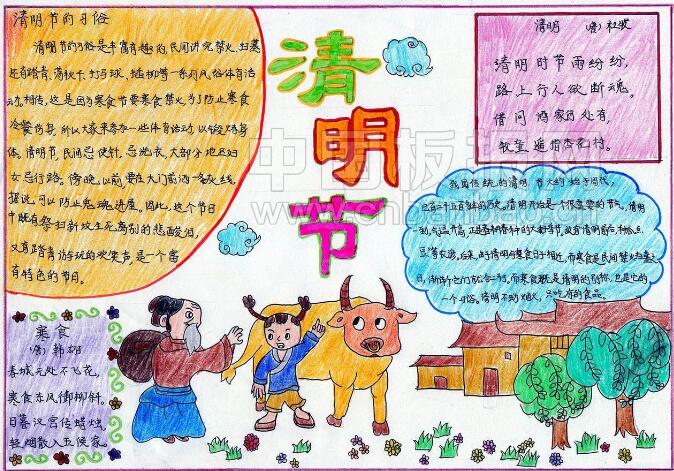 清明节的习俗
清明节的习俗是丰富有趣的,民间讲究禁火、扫墓
还有踏青、荡秋千、打马球、插柳等一系列风俗体育活
动。相传,这是因为寒食节要寒食禁火,为了防止寒食
冷餐伤身,所以大家来参加一些体育活动,以锻炼身
体。清明节,民间忌使针,忌洗衣,大部分地区妇
女忌行路。傍晚以前,要在大门前洒一条灰线,
据说,可以防止鬼魂进屋。因此,这个节日
中既有祭扫新坟生死离别的悲酸泪,
又有踏青游玩的欢笑声,是一个富
有特色的节日。
清
明
节
清明 (唐)杜牧
清明时节雨纷纷,
路上行人欲断魂。
借问酒家何处有,
牧童遥指杏花村。
我国传统的清明节大约始于周代,
已有二千五百多年的历史。清明开始是个很重要的节气,清明
一到,气温升高,正是春耕春种的大好时节,故有清明前后,种瓜点
豆
一个习俗。清明不动烟火,只吃凉的食品。
寒食
(唐)韩翃
春城无处不飞花,
寒食东风御柳斜。
日暮汉宫传蜡烛,
轻烟散入五侯家。
中国板报网
www.cnbanbao.cn